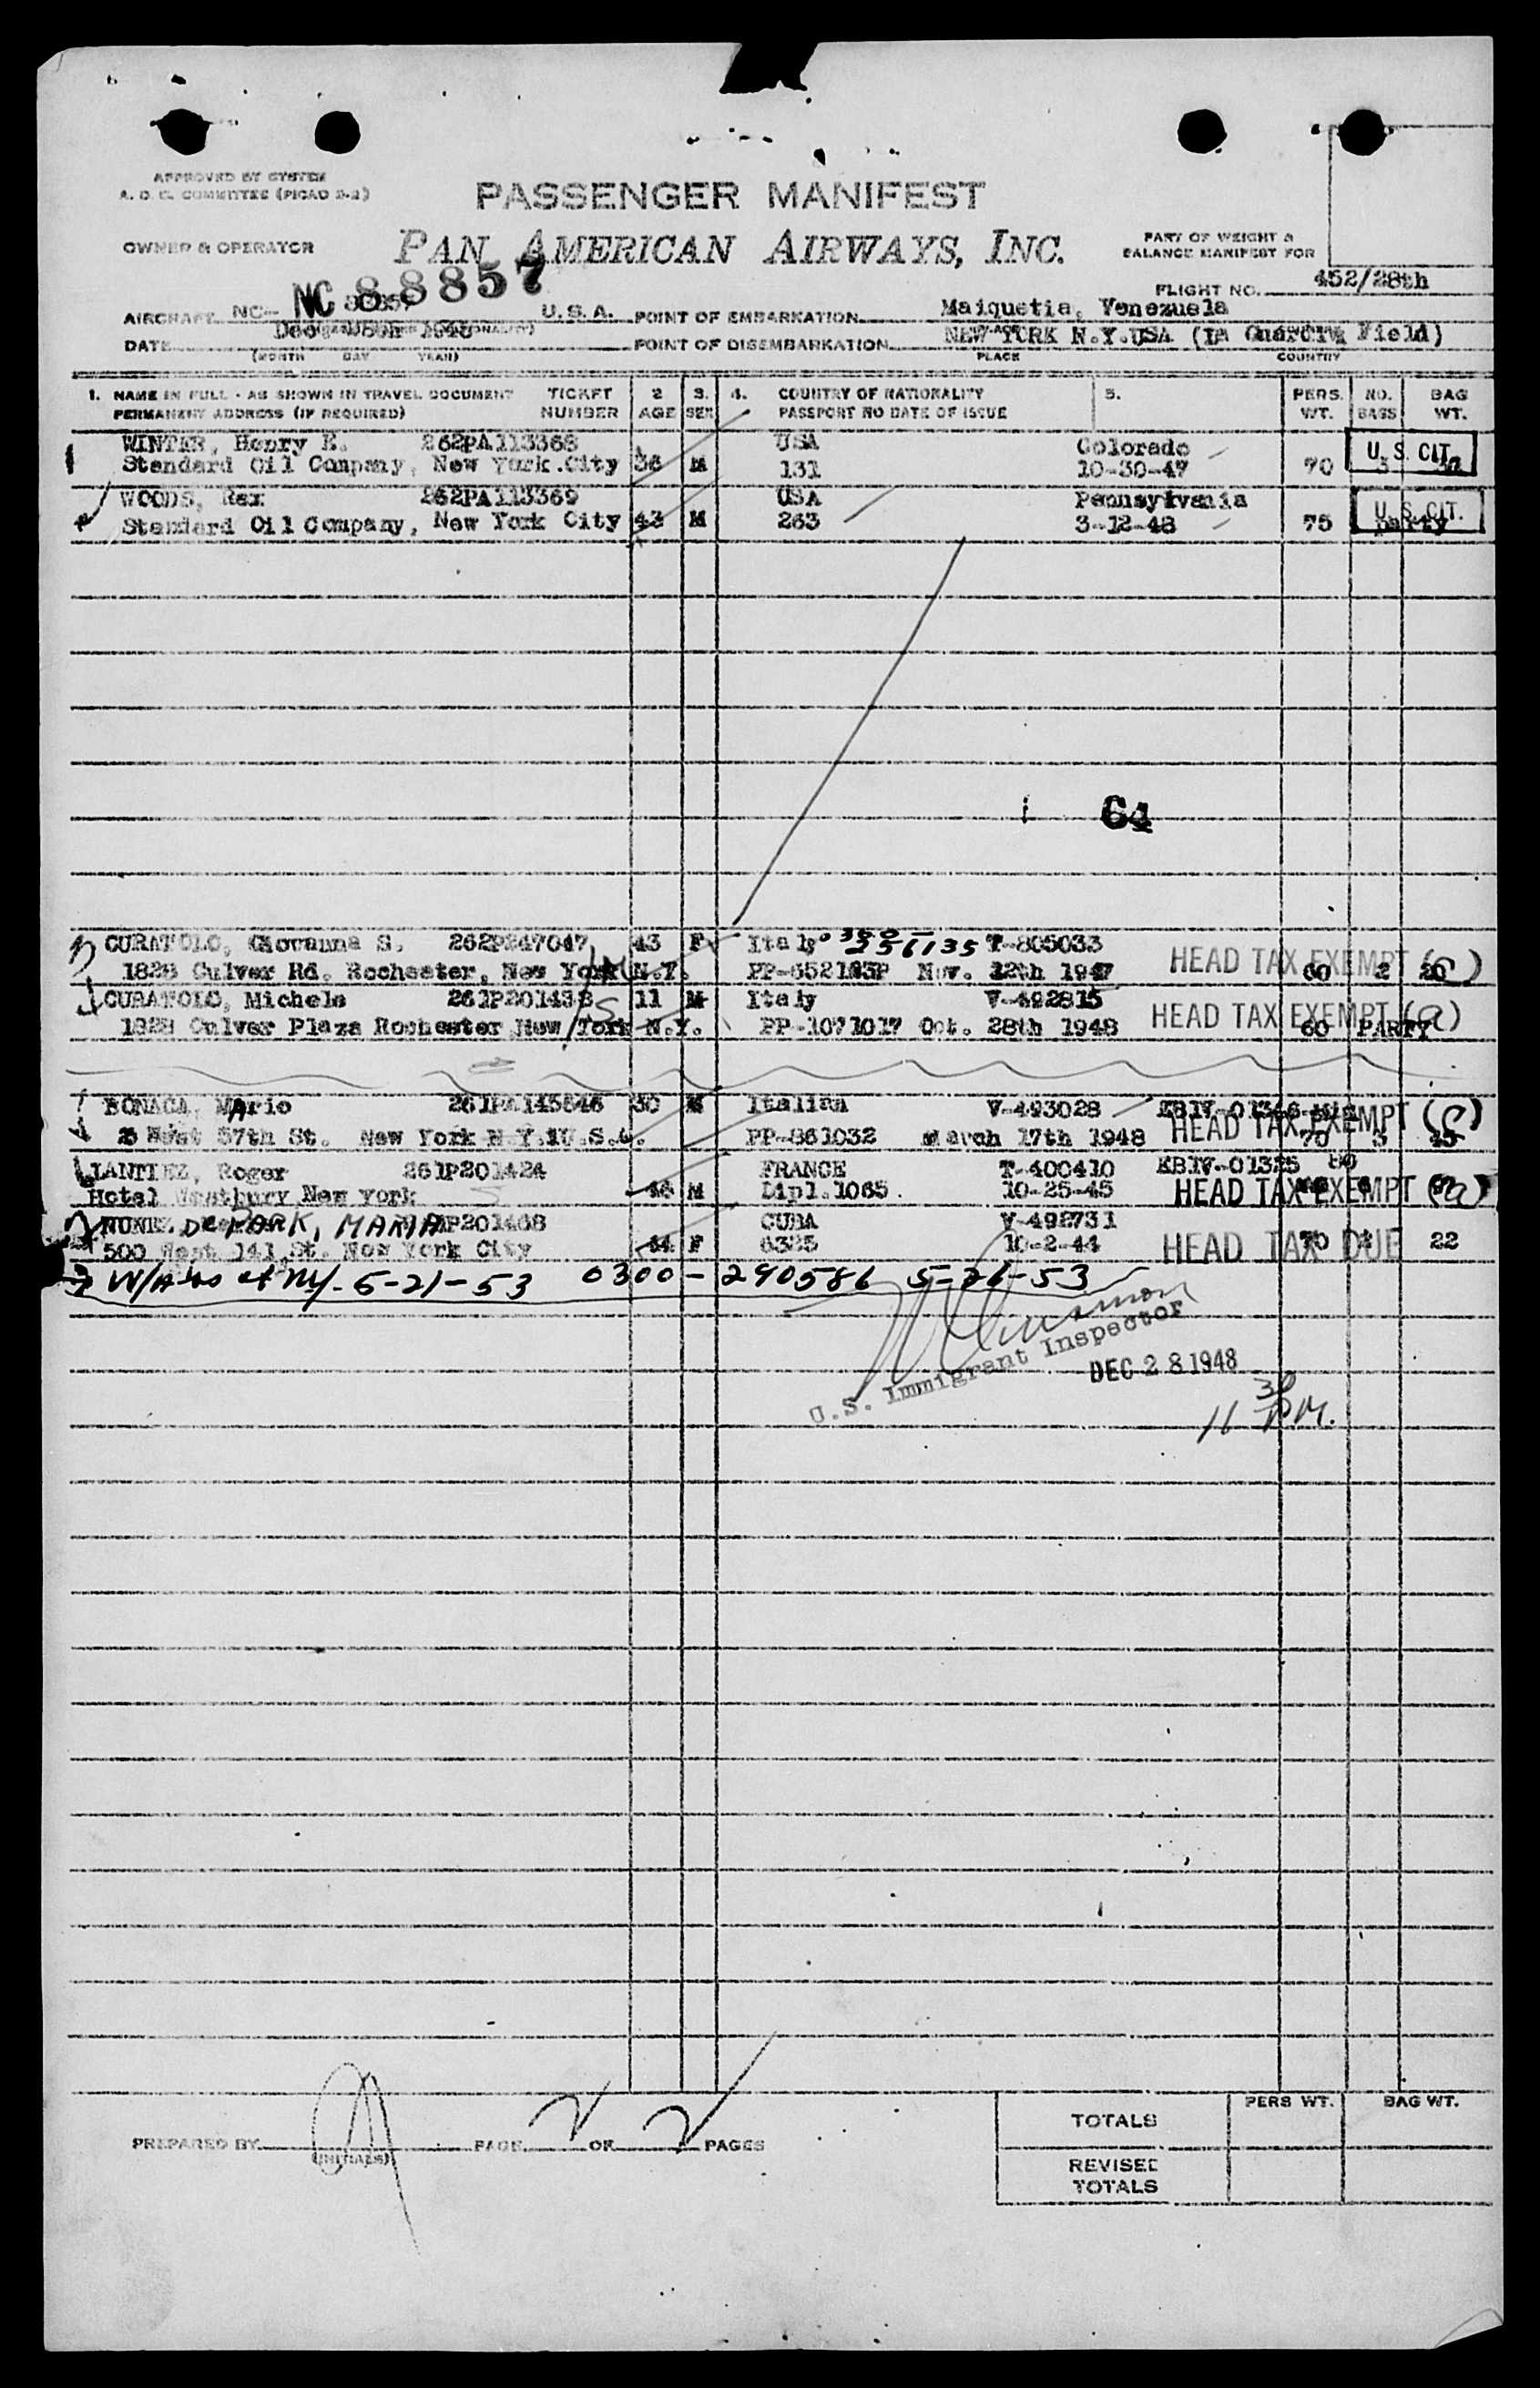 APPROVED BY SYSTEM
A. D. C. COMMITTEE (PICAO D-2)
PASSENGER MANIFEST
OWNER & OPERATOR PAN AMERICAN AIRWAYS, INC.
PART OF WEIGHT &
BALANCE MANIFEST FOR
FLIGHT NO. 452/28th
AIRCRAFT NC- NC 88857 U.S.A. POINT OF EMBARKATION Maiquetia, Venezuela
DATE Dec. 28th 1948 POINT OF DISEMBARKATION NEW YORK N.Y.USA (La Guardia Field)
(MONTH DAY YEAR) PLACE COUNTRY
1. NAME IN FULL - AS SHOWN IN TRAVEL DOCUMENT TICKET 2 3. 4. COUNTRY OF NATIONALITY 5. PERS. NO. BAG
PERMANENT ADDRESS (IF REQUIRED) NUMBER AGE SEX PASSPORT NO DATE OF ISSUE WT. BAGS WT.
1 WINTER, Henry E. 262PA113368 USA Colorado U.S. CIT.
Standard Oil Company, New York City 36 M 131 10-30-47 70 3
WOODS, Rex 262PA113369 USA Pennsylvania U.S. CIT.
Standard Oil Company, New York City 43 M 263 3-12-48 75 party
64
CURATOLO, Giovanna S. 262P247047 43 F Italy 0300- 356135 T-805033
1828 Culver Rd. Rochester, New York N.Y. Nov. 12th 1947 HEAD TAX EXEMPT (a) 60 2 20
CURATOLO, Michele 261P201438 11 M Italy V-492815
1828 Culver Plaza Rochester New York N.Y. PP-1071017 Oct. 28th 1948 HEAD TAX EXEMPT (a) 60 PARTY
BONACA, Mario 261PA145546 30 M Italian V-493028
West 57th St. New York N.Y. U.S.A. PP-861032 March 17th 1948 HEAD TAX EXEMPT 70 3
Roger 261P201424 FRANCE T-400410 EBIV-01325
Hotel Westbury New York 46 M Dipl.1065. 10-25-45 HEAD TAX EXEMPT (a)
DE PARK, MARIA CUBA V-492731
500 West 141 St. New York City 44 F 6325 10-2-44 HEAD TAX DUE 70 22
5-21-53 0300-290586 5-26-53
U.S. Immigrant Inspector
DEC 28 1948
11 30 P.M.
PREPARED BY (INITIALS) PAGE 2 OF 2 PAGES
PERS WT. BAG WT.
TOTALS
REVISED
TOTALS